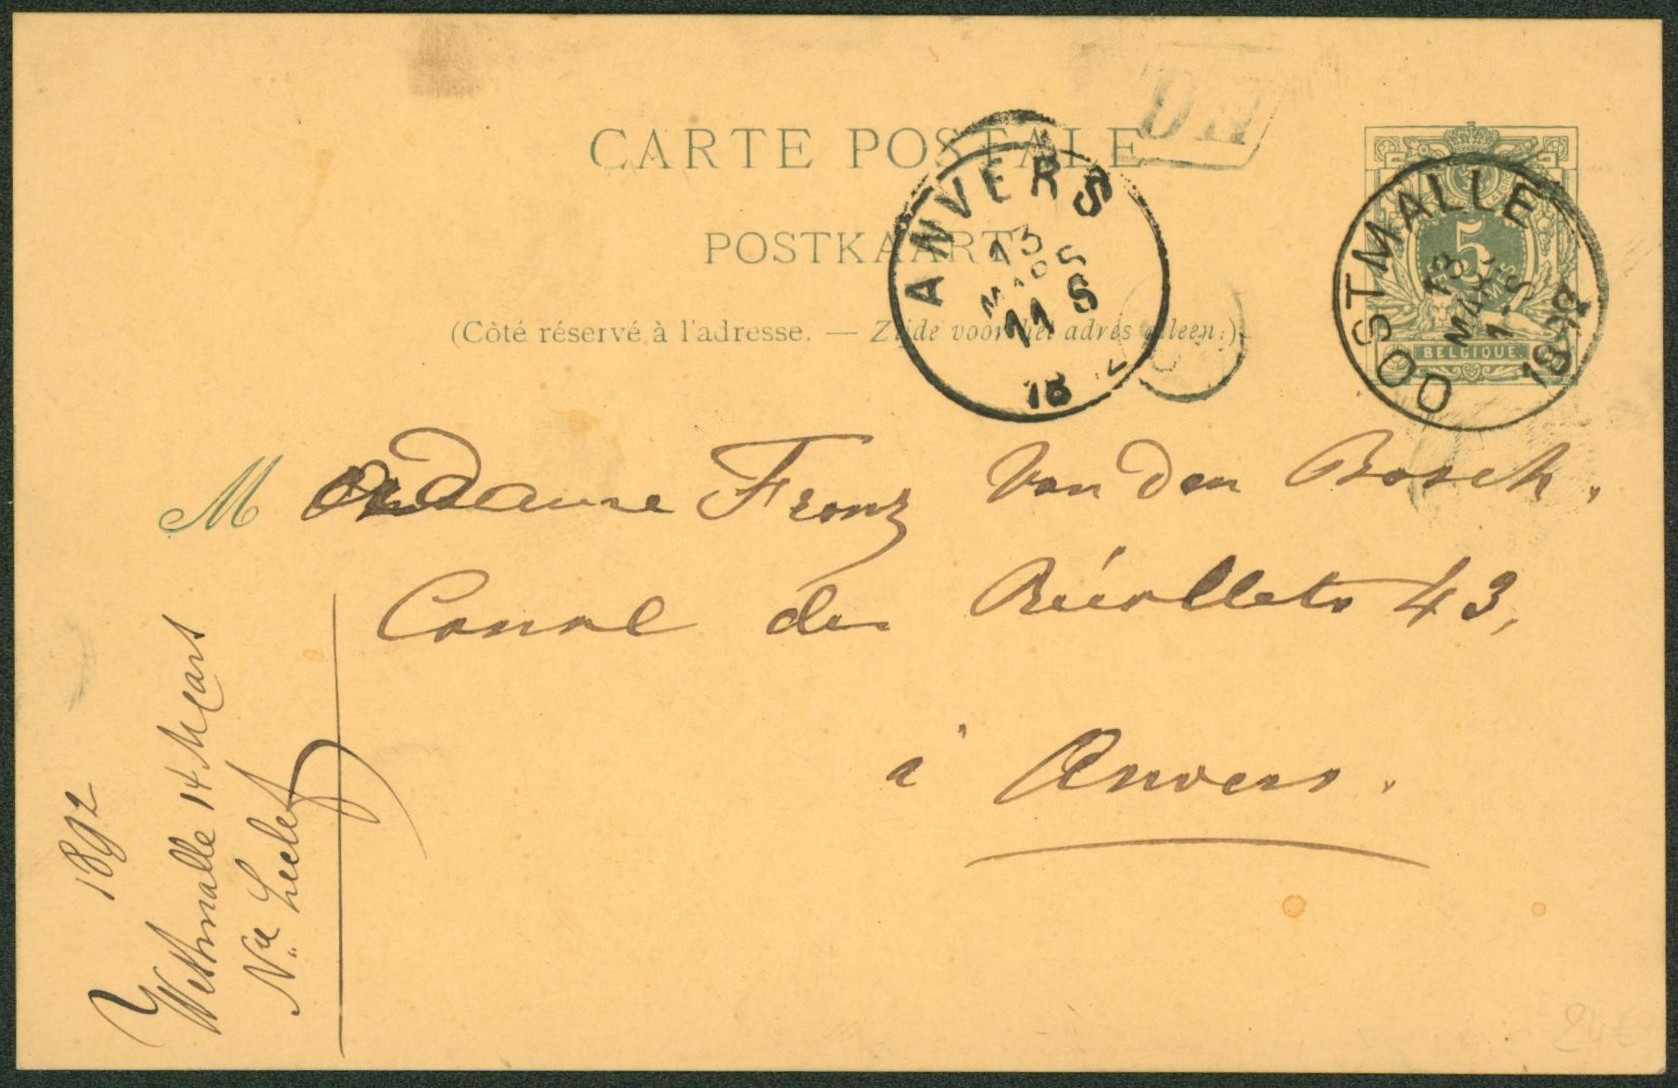 CARTE POSTALE
POSTKAART
(Côté réservé à l'adresse. — Zijde voor het adres alleen.)
ANVERS
13
MARS
11 S
18
5
BELGIQUE
OOSTMALLE
13
MARS
1-S
1892
M adame Franz Van den Bosch.
Canal des Récollets 43,
à Anvers.
1892
Westmalle 14 Mars
Nie
24€